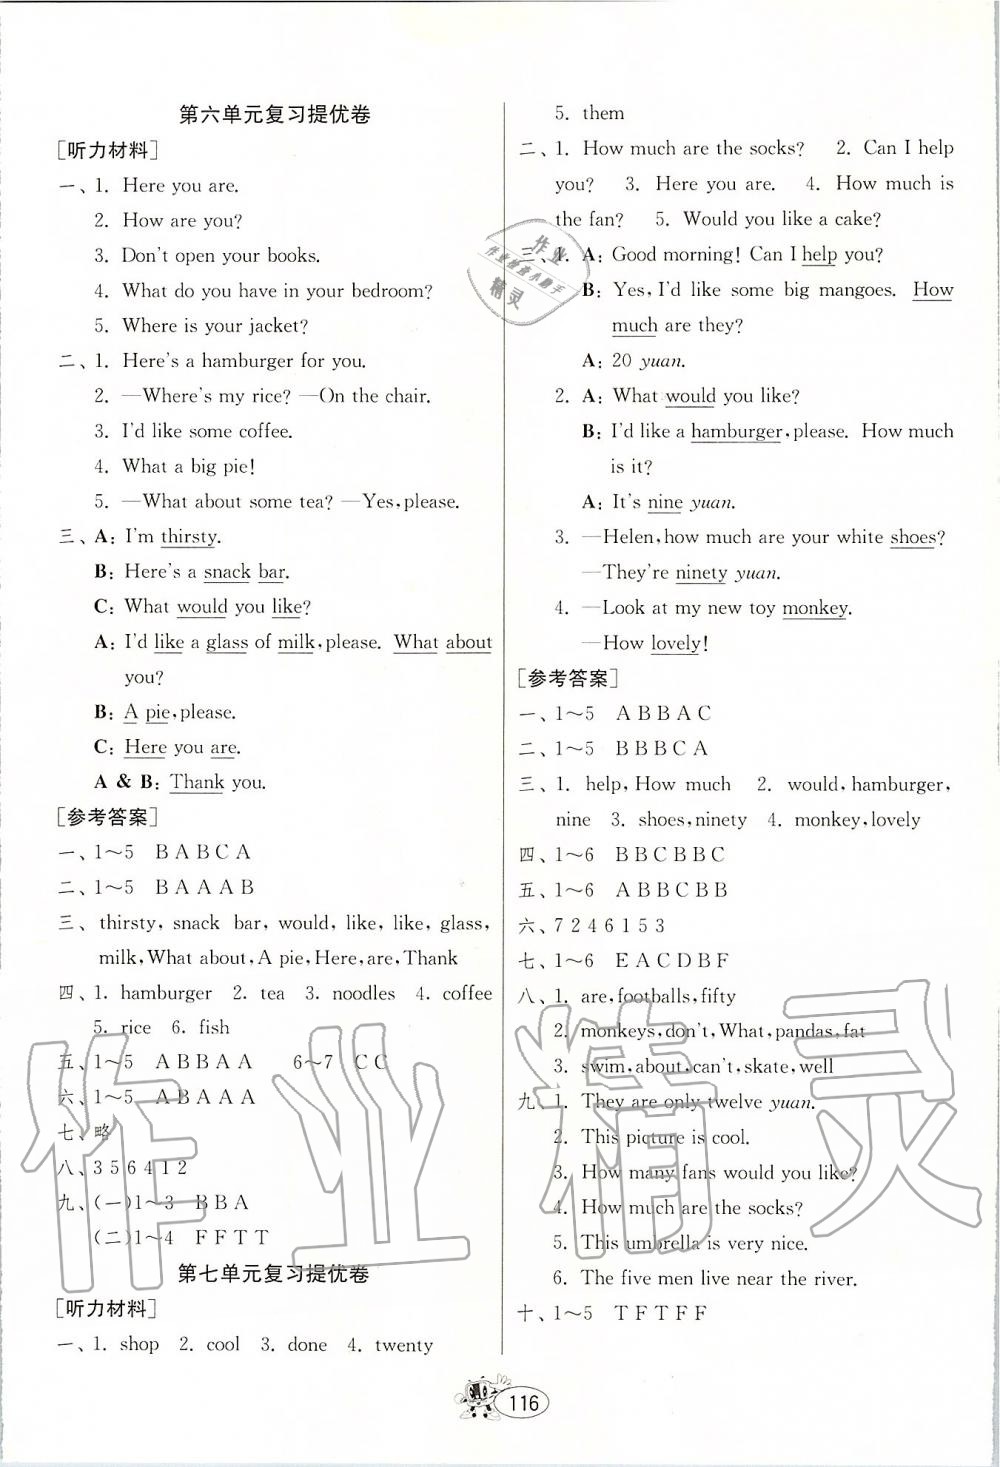 第六单元复习提优卷
[听力材料]
一、1. Here you are.
2. How are you?
3. Don't open your books.
4. What do you have in your bedroom?
5. Where is your jacket?
二、1. Here's a hamburger for you.
2. —Where's my rice? —On the chair.
3. I'd like some coffee.
4. What a big pie!
5. —What about some tea? —Yes, please.
三、A: I'm thirsty.
B: Here's a snack bar.
C: What would you like?
A: I'd like a glass of milk, please. What about
you?
B: A pie, please.
C: Here you are.
A & B: Thank you.
[参考答案]
一、1～5 B A B C A
二、1～5 B A A A B
三、thirsty, snack bar, would, like, like, glass,
milk, What about, A pie, Here, are, Thank
四、1. hamburger 2. tea 3. noodles 4. coffee
5. rice 6. fish
五、1～5 A B B A A 6～7 C C
六、1～5 A B A A A
七、略
八、3 5 6 4 1 2
九、(一)1～3 B B A
(二)1～4 F F T T
第七单元复习提优卷
[听力材料]
一、1. shop 2. cool 3. done 4. twenty
5. them
二、1. How much are the socks? 2. Can I help
you? 3. Here you are. 4. How much is
the fan? 5. Would you like a cake?
三、1. A: Good morning! Can I help you?
B: Yes, I'd like some big mangoes. How
much are they?
A: 20 yuan.
2. A: What would you like?
B: I'd like a hamburger, please. How much
is it?
A: It's nine yuan.
3. —Helen, how much are your white shoes?
—They're ninety yuan.
4. —Look at my new toy monkey.
—How lovely!
[参考答案]
一、1～5 A B B A C
二、1～5 B B B C A
三、1. help, How much 2. would, hamburger,
nine 3. shoes, ninety 4. monkey, lovely
四、1～6 B B C B B C
五、1～6 A B B C B B
六、7 2 4 6 1 5 3
七、1～6 E A C D B F
八、1. are, footballs, fifty
2. monkeys, don't, What, pandas, fat
3. swim, about, can't, skate, well
九、1. They are only twelve yuan.
2. This picture is cool.
3. How many fans would you like?
4. How much are the socks?
5. This umbrella is very nice.
6. The five men live near the river.
十、1～5 T F T F F
116
作业精灵
作业
精灵